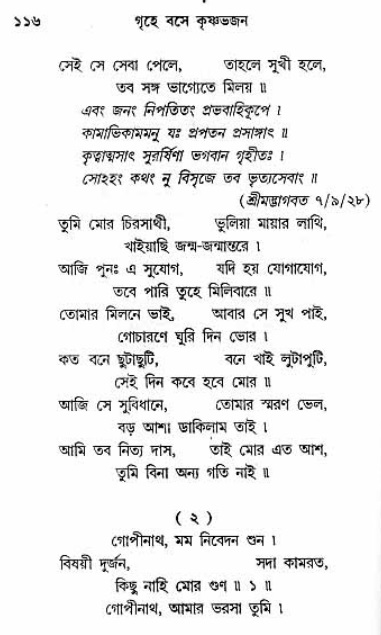 ১১৬ গৃহে বসে কৃষ্ণভজন
সেই সে সেবা পেলে, তাহলে সুখী হলে,
তব সঙ্গ ভাগ্যেতে মিলয় ॥
এবং জনং নিপতিতং প্রভবাহিকূপে ।
কামাভিকামমনু যঃ প্রপতন প্রসাঙ্গাৎ ॥
কৃত্বাত্মসাৎ সুরর্ষিণা ভগবান গৃহীতঃ ।
সোঽহং কথং নু বিসৃজে তব ভৃত্যসেবাং ॥
(শ্রীমদ্ভাগবত ৭/৯/২৮)
তুমি মোর চিরসাথী, ভুলিয়া মায়ার লাথি,
খাইয়াছি জন্ম-জন্মান্তরে ।
আজি পুনঃ এ সুযোগ, যদি হয় যোগাযোগ,
তবে পারি তুহে মিলিবারে ॥
তোমার মিলনে ভাই, আবার সে সুখ পাই,
গোচারণে ঘুরি দিন ভোর ।
কত বনে ছুটাছুটি, বনে খাই লুটাপুটি,
সেই দিন কবে হবে মোর ॥
আজি সে সুবিধানে, তোমার স্মরণ ভেল,
বড় আশা ডাকিলাম তাই ।
আমি তব নিত্য দাস, তাই মোর এত আশ,
তুমি বিনা অন্য গতি নাই ॥
( ২ )
গোপীনাথ, মম নিবেদন শুন ।
বিষয়ী দুর্জন, সদা কামরত,
কিছু নাহি মোর গুণ ॥ ১ ॥
গোপীনাথ, আমার ভরসা তুমি ।